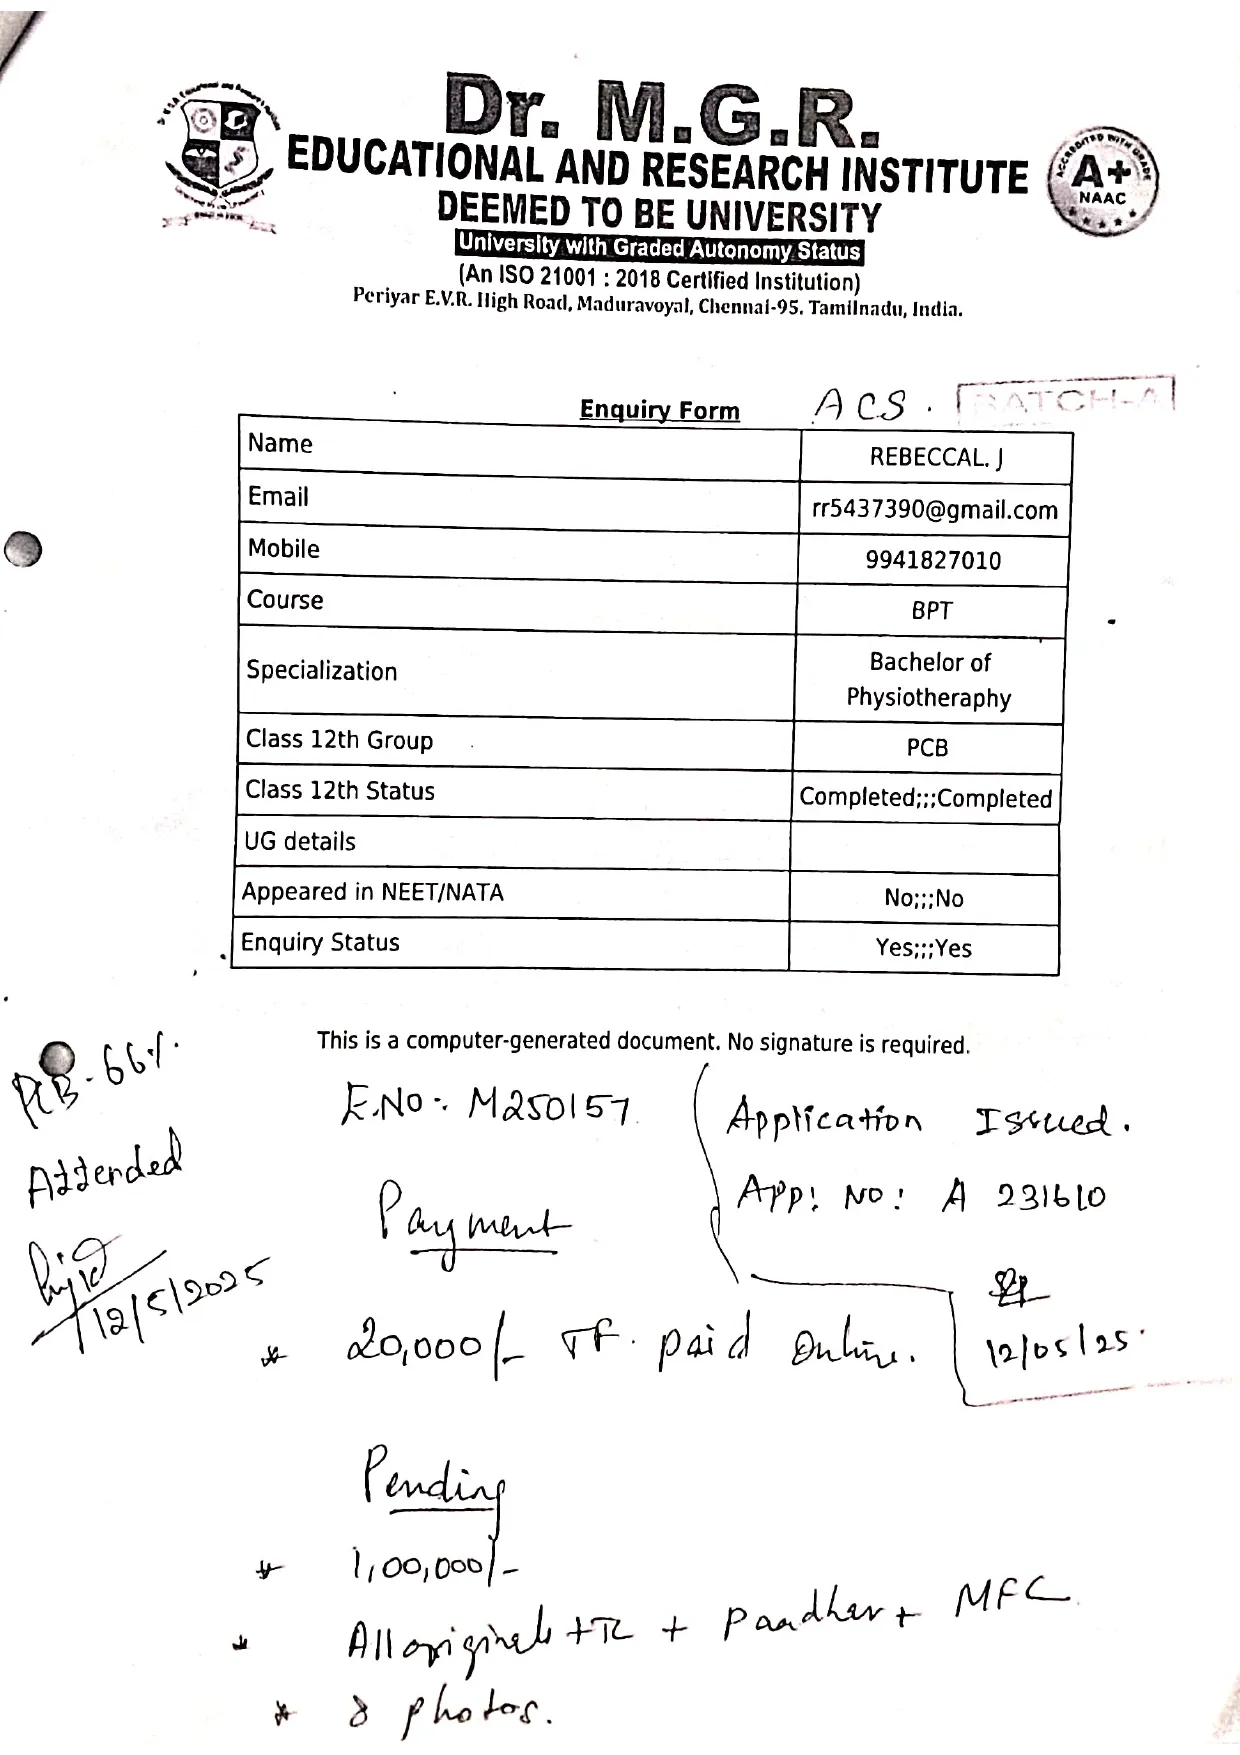 Dr. M.G.R.
EDUCATIONAL AND RESEARCH INSTITUTE
DEEMED TO BE UNIVERSITY
University with Graded Autonomy Status
(An ISO 21001 : 2018 Certified Institution)
Periyar E.V.R. High Road, Maduravoyal, Chennai-95. Tamilnadu, India.
ACCREDITED WITH GRADE
A+
NAAC
Enquiry Form
ACS.
BATCH-A
Name REBECCAL. J
Email rr5437390@gmail.com
Mobile 9941827010
Course BPT
Specialization Bachelor of
Physiotheraphy
Class 12th Group PCB
Class 12th Status Completed;;;Completed
UG details
Appeared in NEET/NATA No;;;No
Enquiry Status Yes;;;Yes
This is a computer-generated document. No signature is required.
PCB - 66%.
Attended
12/5/2025
E.No: M250157
Application Issued.
App: No: A 231610
12/05/25.
Payment
* 20,000/- TF. paid Online.
Pending
* 1,00,000/-
* All originals + TC + Paadhar + MFC
* 8 photos.